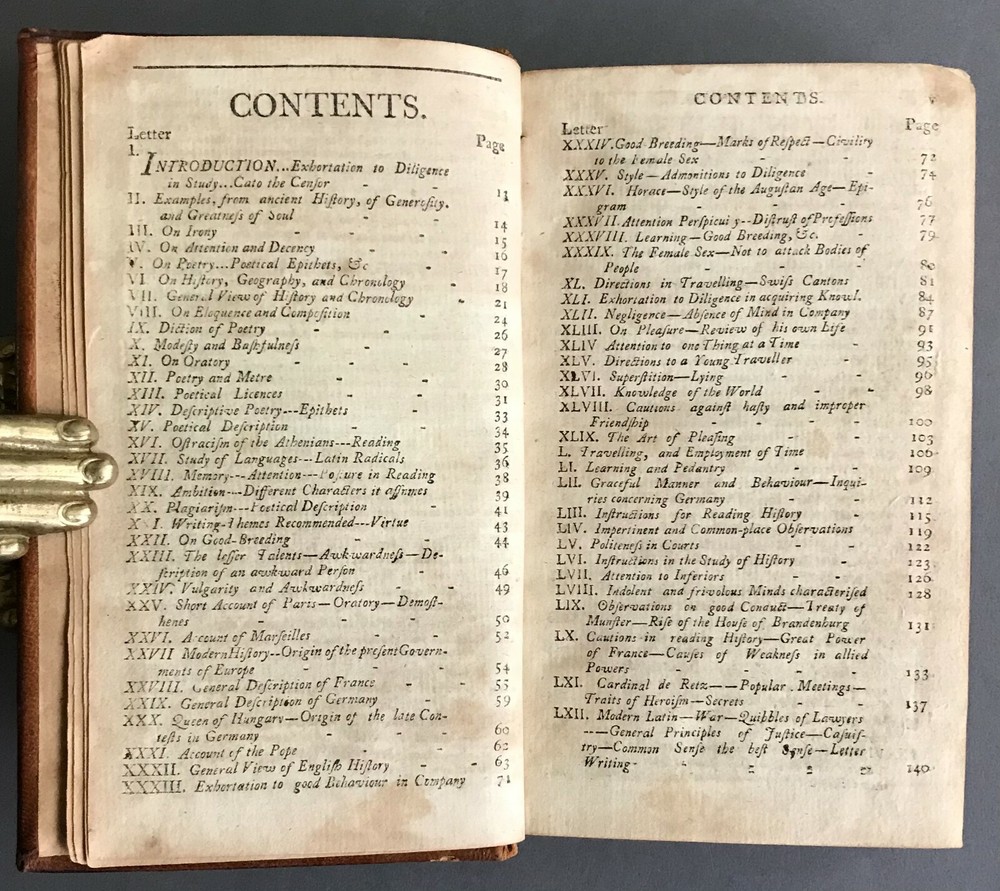 CONTENTS.
Letter Page
I. INTRODUCTION...Exhortation to Diligence
in Study...Cato the Cenſor - -
II. Examples, from ancient Hiſtory, of Generoſity, 11
and Greatneſs of Soul - -
III. On Irony - - - 14
IV. On Attention and Decency - 15
V. On Poetry...Poetical Epithets, &c - 16
VI On Hiſtory, Geography, and Chronology - 17
VII. General View of Hiſtory and Chronology - 18
VIII. On Eloquence and Compoſition - 21
IX. Diction of Poetry - - 24
X. Modeſty and Baſhfulneſs - - 26
XI. On Oratory - - - 27
XII. Poetry and Metre - - 28
XIII. Poetical Licences - - 30
XIV. Deſcriptive Poetry---Epithets - 31
XV. Poetical Deſcription - - 33
XVI. Oſtraciſm of the Athenians---Reading 34
XVII. Study of Languages---Latin Radicals 35
XVIII. Memory---Attention---Poſture in Reading 36
XIX. Ambition---Different Characters it aſſumes 38
XX. Plagiariſm---Poetical Deſcription - 39
X I. Writing-Themes Recommended---Virtue 41
XXII. On Good-Breeding - - 43
XXIII. The leſſer Talents—Awkwardneſs—De- 44
ſcription of an awkward Perſon - 46
XXIV. Vulgarity and Awkwardneſs - - 49
XXV. Short Account of Paris—Oratory—Demoſt-
henes - - - - 50
XXVI. Account of Marſeilles - - 52
XXVII Modern Hiſtory--Origin of the preſent Govern-
ments of Europe - - 54
XXVIII. General Deſcription of France - - 55
XXIX. General Deſcription of Germany - - 59
XXX. Queen of Hungary—Origin of the late Con-
teſts in Germany - - - 60
XXXI. Account of the Pope - - - 62
XXXII. General View of Engliſh Hiſtory - - 63
XXXIII. Exhortation to good Behaviour in Company 71
CONTENTS. v
Letter Page
XXXIV. Good Breeding—Marks of Reſpect—Civility
to the Female Sex - - 72
XXXV. Style—Admonitions to Diligence - 74
XXXVI. Horace—Style of the Auguſtan Age—Epi-
gram - - - - 76
XXXVII. Attention Perſpicui y--Diſtruſt of Profeſſions 77
XXXVIII. Learning—Good Breeding, &c. - 79
XXXIX. The Female Sex—Not to attack Bodies of
People - - - - 80
XL. Directions in Travelling—Swiſs Cantons 81
XLI. Exhortation to Diligence in acquiring Knowl. 84
XLII. Negligence—Abſence of Mind in Company 87
XLIII. On Pleaſure—Review of his own Life 91
XLIV Attention to one Thing at a Time - 93
XLV. Directions to a Young Traveller - 95
XLVI. Superſtition—Lying - - 96
XLVII. Knowledge of the World - - 98
XLVIII. Cautions againſt haſty and improper
Friendſhip - - - - 100
XLIX. The Art of Pleaſing - - 103
L. Travelling, and Employment of Time - 106
LI. Learning and Pedantry - - 109
LII. Graceful Manner and Behaviour—Inqui-
ries concerning Germany - - 112
LIII. Inſtructions for Reading Hiſtory - 115
LIV. Impertinent and Common-place Obſervations 119
LV. Politeneſs in Courts - - 122
LVI. Inſtructions in the Study of Hiſtory - 123
LVII. Attention to Inferiors - - 126
LVIII. Indolent and frivolous Minds characteriſed 128
LIX. Obſervations on good Conduct—Treaty of
Munſter—Riſe of the Houſe of Brandenburg 131
LX. Cautions in reading Hiſtory—Great Power
of France—Cauſes of Weakneſs in allied
Powers - - - - 133
LXI. Cardinal de Retz——Popular Meetings—
Traits of Heroiſm—Secrets - - 137
LXII. Modern Latin—War—Quibbles of Lawyers
----General Principles of Juſtice—Caſuiſ-
try—Common Senſe the beſt Senſe—Letter
Writing - - - - 140